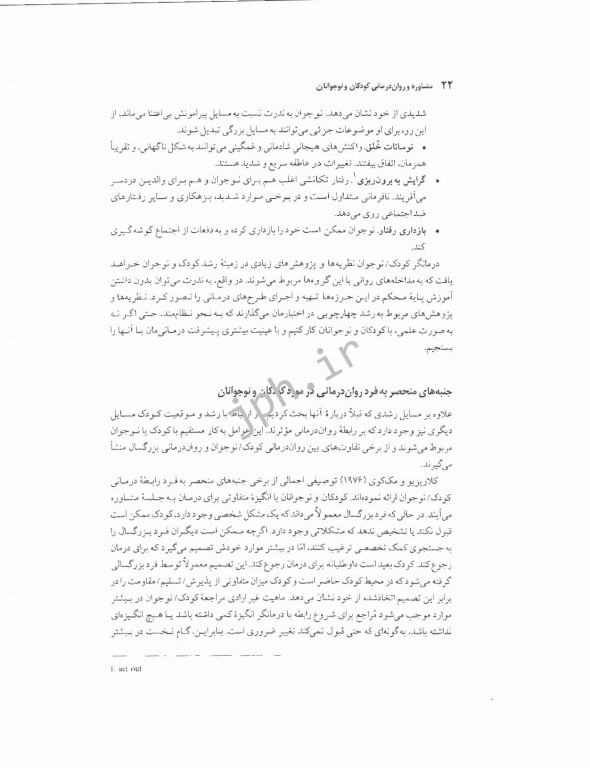 ۲۲ مشاوره و روان‌درمانی کودکان و نوجوانان
شدیدی از خود نشان می‌دهد. نوجوان به ندرت نسبت به مسایل پیرامونش بی‌اعتنا می‌ماند، از
این رو، برای او موضوعات جزئی می‌توانند به مسایل بزرگی تبدیل شوند.
• نوسانات خُلق. واکنش‌های هیجانیِ شادمانی و غمگینی می‌توانند به شکل ناگهانی، و تقریباً
همزمان، اتفاق بیفتند. تغییرات در عاطفه سریع و شدید هستند.
• گرایش به برون‌ریزی۱. رفتار تکانشی اغلب هم برای نوجوان و هم برای والدین دردسر
می‌آفریند. نافرمانی متداول است و در برخی موارد شدید، بزهکاری و سایر رفتارهای
ضداجتماعی روی می‌دهد.
• بازداری رفتار. نوجوان ممکن است خود را بازداری کرده و به دفعات از اجتماع گوشه‌گیری
کند.
درمانگر کودک/ نوجوان نظریه‌ها و پژوهش‌های زیادی در زمینهٔ رشد کودک و نوجوان خواهد
یافت که به مداخله‌های روانی با این گروه‌ها مربوط می‌شوند. در واقع، به ندرت می‌توان بدون داشتن
آموزش پایهٔ محکم در این حوزه‌ها تهیه و اجرای طرح‌های درمانی را تصور کرد. نظریه‌ها و
پژوهش‌های مربوط به رشد چهارچوبی در اختیارمان می‌گذارند که به نحو نظام‌مند، حتی اگر نه
به صورت علمی، با کودکان و نوجوانان کار کنیم و با عینیت بیشتری پیشرفت درمانی‌مان با آنها را
بسنجیم.
جنبه‌های منحصر به فرد روان‌درمانی در مورد کودکان و نوجوانان
علاوه بر مسایل رشدی که قبلاً دربارهٔ آنها بحث کردیم، در ارتباط با رشد و موقعیت کودک مسایل
دیگری نیز وجود دارد که بر رابطهٔ روان‌درمانی مؤثرند. این عوامل به کار مستقیم با کودک یا نوجوان
مربوط می‌شوند و از برخی تفاوت‌های بین روان‌درمانی کودک/ نوجوان و روان‌درمانی بزرگسال منشأ
می‌گیرند.
کلاریزیو و مک‌کوی (۱۹۷۶) توصیفی اجمالی از برخی جنبه‌های منحصر به فرد رابطهٔ درمانی
کودک/ نوجوان ارائه نموده‌اند. کودکان و نوجوانان با انگیزهٔ متفاوتی برای درمان به جلسهٔ مشاوره
می‌آیند. در حالی‌که فرد بزرگسال معمولاً می‌داند که یک مشکل شخصی وجود دارد، کودک ممکن است
قبول نکند یا تشخیص ندهد که مشکلاتی وجود دارد. اگرچه ممکن است دیگران فرد بزرگسال را
به جستجوی کمک تخصصی ترغیب کنند، امّا در بیشتر موارد خودش تصمیم می‌گیرد که برای درمان
رجوع کند. کودک بعید است داوطلبانه برای درمان رجوع کند. این تصمیم معمولاً توسط فرد بزرگسالی
گرفته می‌شود که در محیط کودک حاضر است و کودک میزان متفاوتی از پذیرش/ تسلیم/ مقاومت را در
برابر این تصمیم اتخاذشده از خود نشان می‌دهد. ماهیت غیر ارادی مراجعهٔ کودک/ نوجوان در بیشتر
موارد موجب می‌شود مُراجع برای شروع رابطه با درمانگر انگیزهٔ کمی داشته باشد یا هیچ انگیزه‌ای
نداشته باشد، به‌گونه‌ای که حتی قبول نمی‌کند تغییر ضروری است. بنابراین، گام نخست در بیشتر
1. act out
jph.ir